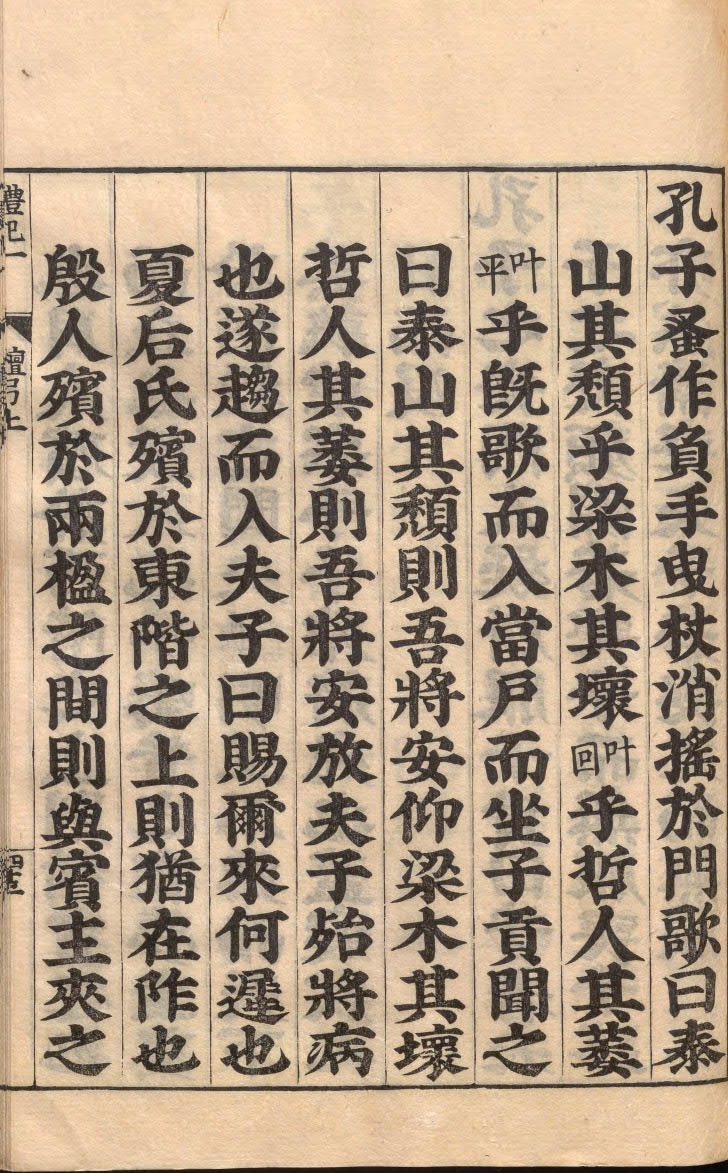 孔子蚤作負手曳杖消搖於門歌曰泰
山其頹乎梁木其壞叶回乎哲人其萎
叶平乎旣歌而入當戶而坐子貢聞之
曰泰山其頹則吾將安仰梁木其壞
哲人其萎則吾將安放夫子殆將病
也遂趨而入夫子曰賜爾來何遲也
夏后氏殯於東階之上則猶在阼也
殷人殯於兩楹之間則與賓主夾之
禮記一
檀弓上